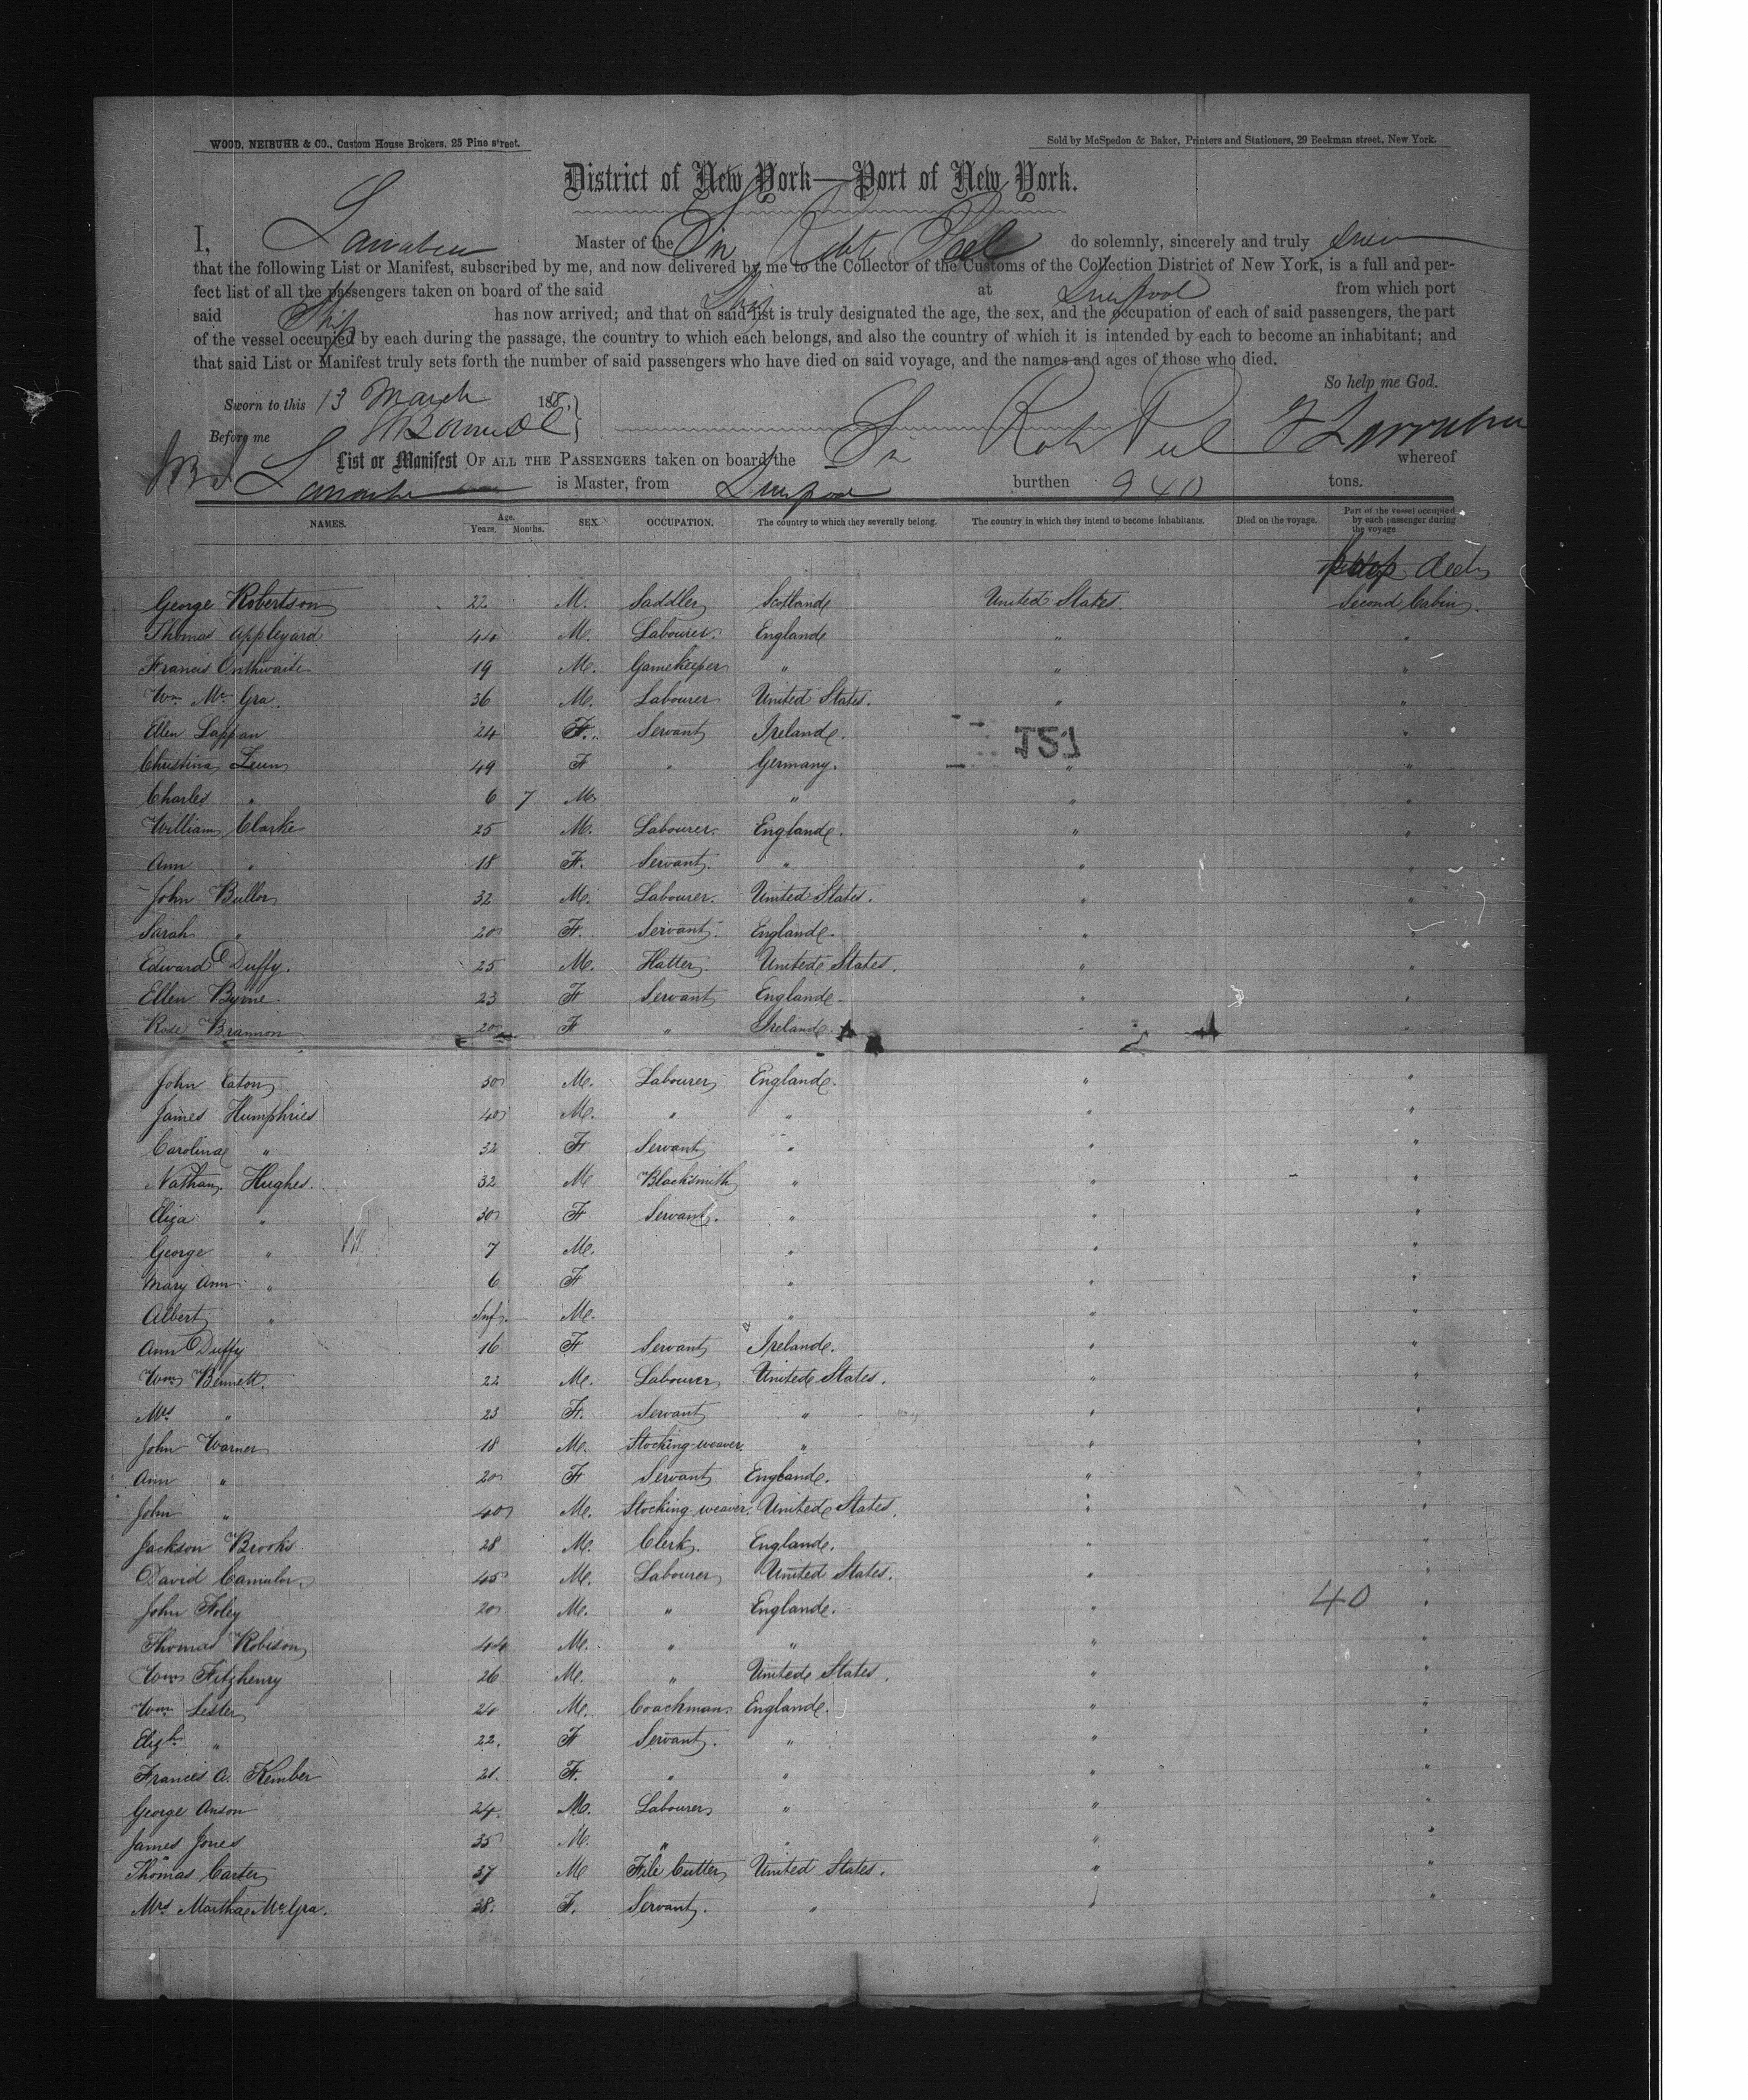 WOOD, NEIBUHR & CO., Custom House Brokers. 25 Pine street.
Sold by McSpedon & Baker, Printers and Stationers, 29 Beekman street, New York.
District of New York—Port of New York.
I, Master of the Sir Robt Peel do solemnly, sincerely and truly swear
that the following List or Manifest, subscribed by me, and now delivered by me to the Collector of the Customs of the Collection District of New York, is a full and per-
fect list of all the passengers taken on board of the said Ship at Liverpool from which port
said Ship has now arrived; and that on said list is truly designated the age, the sex, and the occupation of each of said passengers, the part
of the vessel occupied by each during the passage, the country to which each belongs, and also the country of which it is intended by each to become an inhabitant; and
that said List or Manifest truly sets forth the number of said passengers who have died on said voyage, and the names and ages of those who died.
So help me God.
Sworn to this 13 March 185
Before me
List or Manifest OF ALL THE PASSENGERS taken on board the Sir Robt Peel whereof
is Master, from Liverpool burthen 940 tons.
NAMES. Age. Years. Months. SEX. OCCUPATION. The country to which they severally belong. The country in which they intend to become inhabitants. Died on the voyage. Part of the vessel occupied by each passenger during the voyage
deck
George Robertson 22 M. Saddler Scotland United States. Second Cabin.
Thomas Appleyard 44 M. Labourer. England " "
Francis Onthwaite 19 M. Gamekeeper " " "
Wm. Mc Gra. 36 M. Labourer United States. " "
Ellen Lappan 24 F. Servant Ireland. "
157
Christina Zeun 49 F " Germany. " "
Charles " 6 7 M " " "
William Clarke 25 M. Labourer. England. " "
Ann " 18 F. Servant. " " "
John Buller 32 M. Labourer. United States. " "
Sarah " 20 F. Servant. England. " "
Edward Duffy. 25 M. Hatter. United States. " "
Ellen Byrne 23 F Servant England. " "
Rose Brannon 20 F " Ireland. " "
John Eaton 30 M. Labourer England. " "
James Humphries 40 M. " " " "
Caroline " 32 F Servant " " "
Nathan Hughes. 32 M Blacksmith " " "
Eliza " 30 F Servant. " " "
George " 7 M. " " "
Mary Ann " 6 F " " "
Albert " Inf. M. " " "
Ann Duffy 16 F Servant Ireland. " "
Wm Bennett. 22 M. Labourer United States. " "
Mrs " 23 F. Servant " " "
John Warner 18 M. Stocking-weaver. " " "
Ann " 20 F Servant England. " "
John " 40 M. Stocking weaver. United States. " "
Jackson Brooks 28 M. Clerk. England. " "
David 45 M. Labourer United States. " "
John Foley 20 M. " England. " 40 "
Thomas Robison 44 M. " " " "
Wm Fitzhenry 26 M. " United States. " "
Wm Lester 20 M. Coachman. England. " "
Elizh. " 22. F Servant. " " "
Frances A. Kember 21. F. " " " "
George Anson 24. M. Labourer " " "
James Jones 35 M. " " " "
Thomas Carter 37 M File Cutter United States. " "
Mrs Martha McGra. 38. F. Servant. " " "